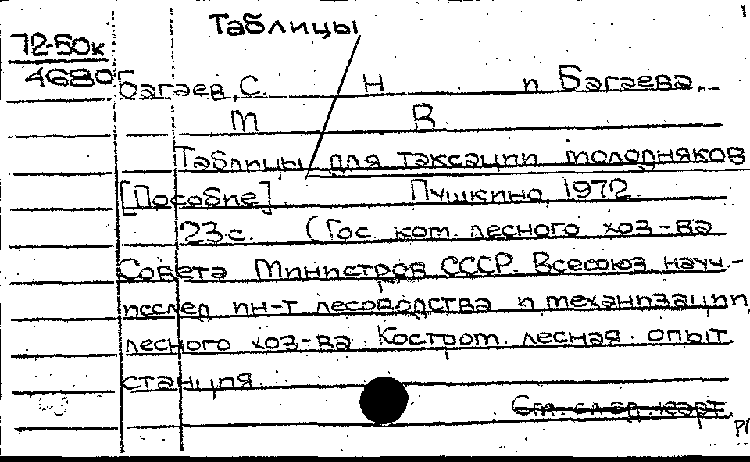 Таблицы
72-50к
4680
Багаев, С. Н и Багаева,
М В.
Таблицы для таксации молодняков
[Пособие]. Пушкино, 1972.
23с. (Гос ком. лесного хоз-ва
Совета Министров СССР. Всесоюз науч.-
исслед ин-т лесоводства и механизации
лесного хоз-ва. Костром. лесная опыт.
станция.
См. след. карт.